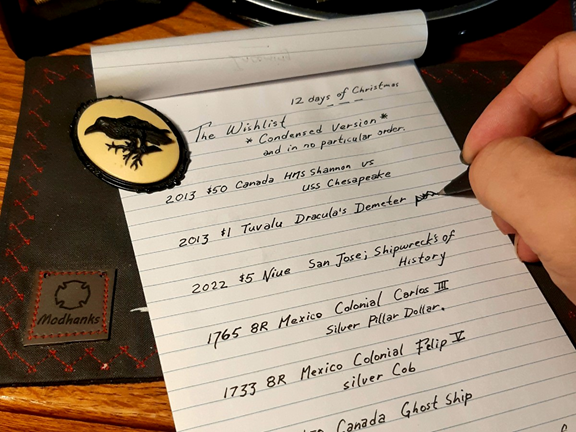 12 days of Christmas
The Wishlist
* Condensed Version *
and in no particular order.
2013 $50 Canada HMS Shannon vs
USS Chesapeake
2013 $1 Tuvalu Dracula's Demeter
2022 $5 Niue San Jose; Shipwrecks of
History
1765 8R Mexico Colonial Carlos III
Silver Pillar Dollar.
1733 8R Mexico Colonial Felip V
silver Cob
Canada Ghost Ship
Modhanks